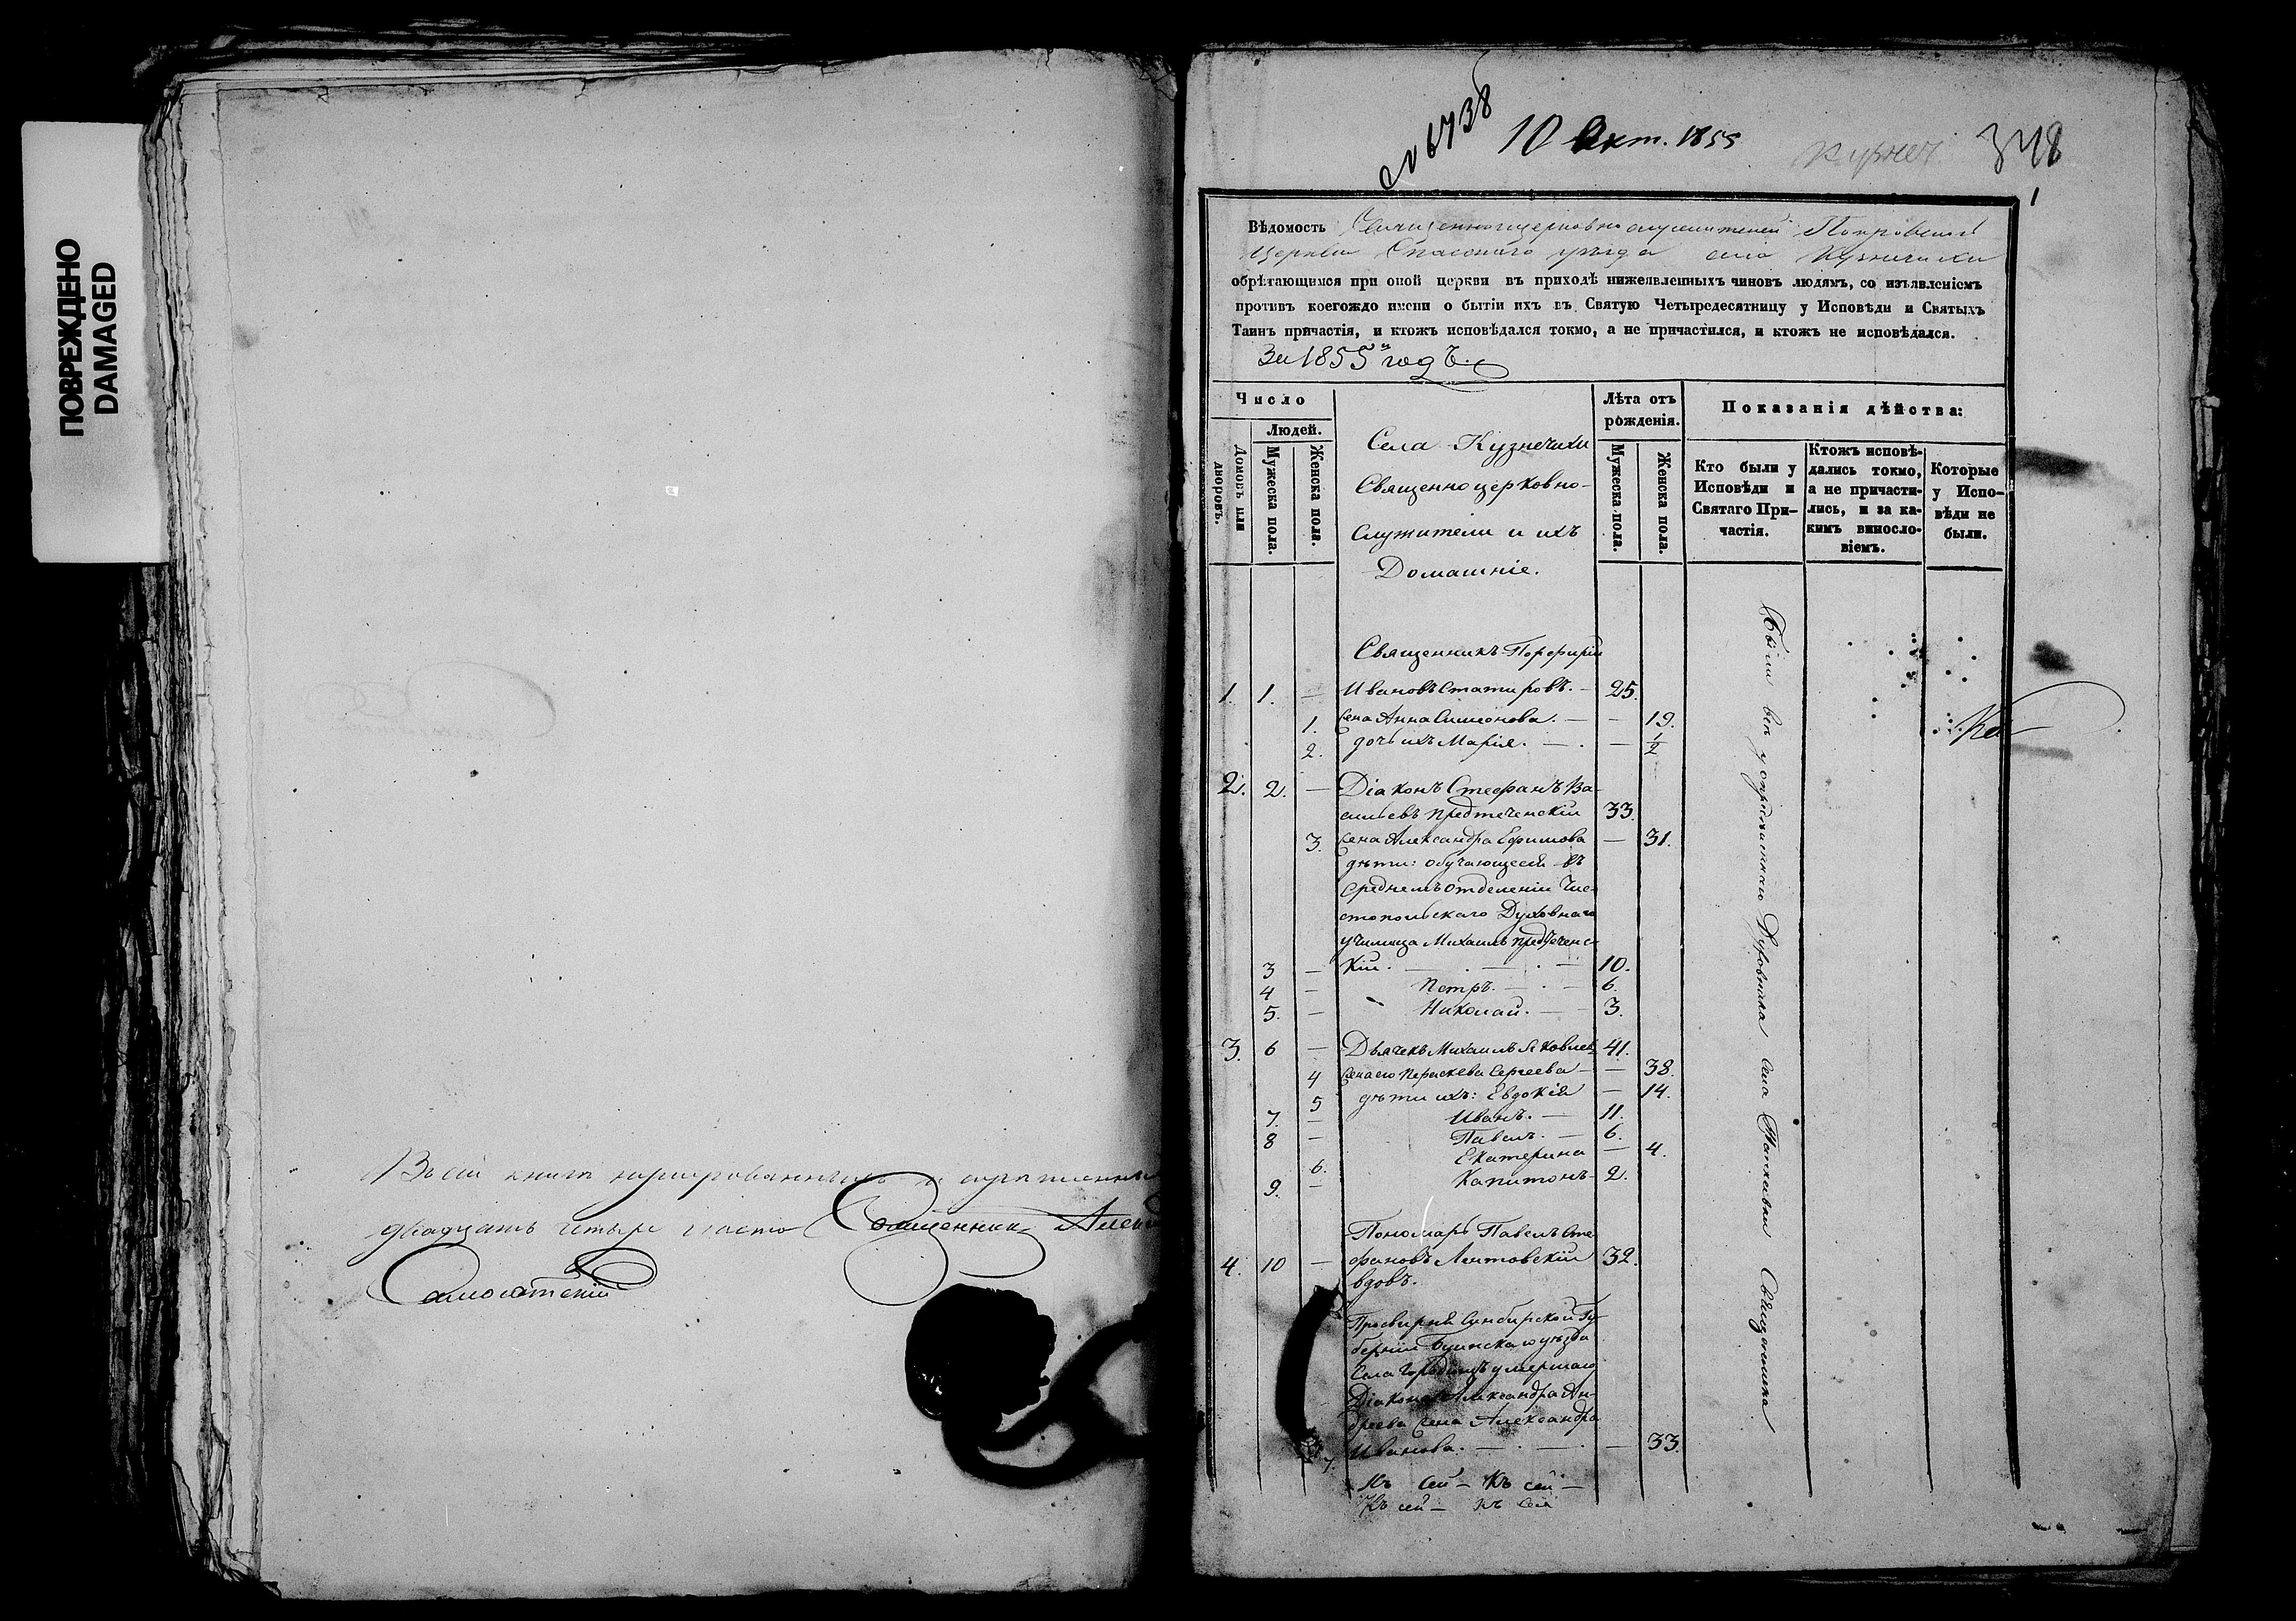 ПОВРЕЖДЕНО
DAMAGED
Въ сей книгѣ нумерованныхъ и
двадцать четыре листа Священникъ
№ 6738
10 Окт. 1855
Кузнеч.
348
1
Вѣдомость Священноцерковнослужителей Покровской
Церкви Спасскаго уѣзда села Кузнечихи
обрѣтающимся при оной церкви въ приходѣ нижеявленныхъ чиновъ людямъ, со изъявленіемъ
противъ коегождо имени о бытіи ихъ въ Святую Четыредесятницу у Исповѣди и Святыхъ
Таинъ причастія, и ктожъ исповѣдался токмо, а не причастился, и ктожъ не исповѣдался.
За 1855й годъ.
Число
Людей.
Домовъ или дворовъ.
Мужеска пола.
Женска пола.
Села Кузнечихи
Священноцерковно-
служители и ихъ
Домашніе.
Лѣта отъ
рожденія.
Мужеска пола.
Женска пола.
Показанія дѣйства:
Кто были у
Исповѣди и
Святаго При-
частія.
Ктожъ исповѣ-
дались токмо,
а не причасти-
лись, и за ка-
кимъ винosло-
віемъ.
Которые
у Испо-
вѣди не
были.
Священникъ Порфирій
1. 1. — Ивановъ Статировъ. — 25.
1. Жена Анна Симеонова. — — 19.
2. дочь ихъ Марія. — — 1/2
2. 2. — Діаконъ Стефанъ Ва-
сильевъ Предтеченскій 33.
3. Жена Александра Ефимова — 31.
дѣти: обучающійся въ
среднемъ отделеніи Чис-
стопольскаго Духовнаго
училища Михаилъ Предтеченс-
3 — кій. — 10.
4 — Петръ. — 6.
5. — Николай. — 3.
3. 6 — Дьячекъ Михаилъ Яковлевъ 41.
4 Жена его Параскева Сергеева — — 38.
5 дѣти ихъ: Евдокія — 14.
7. — Иванъ. — 11.
8 — Павелъ. — 6.
6. Екатерина — 4.
9. — Капитонъ — 2.
Пономарь Павелъ Сте-
4. 10 — фановъ Лентовскій 32.
вдовъ.
Просвирня Симбирской Гу-
берніи Буинскаго уѣзда
села Городищъ умершаго
Діакона Александра Ан-
дреева жена Александра
7. Иванова. — — 33.
Къ сей — Къ сей —
Къ сей — къ сей
Были все у Духовника села Священника